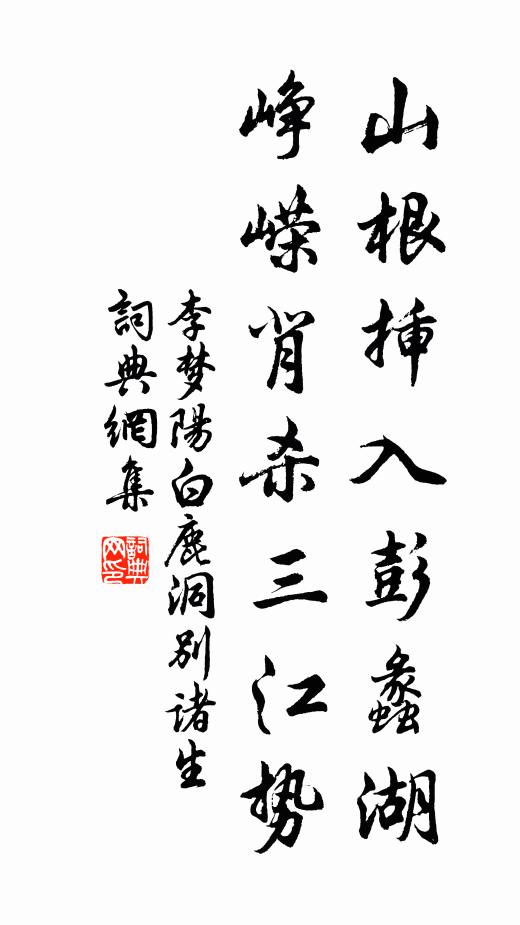 山根挿入彭蠡湖
峥嵘肖杀三江势
李梦陽白鹿洞别诸生
詞典網集
詞典网印